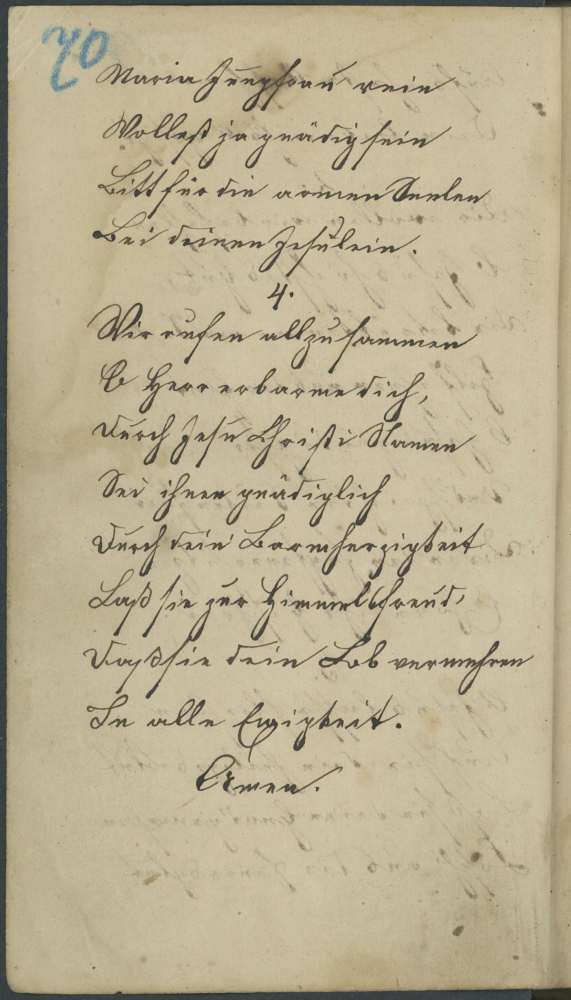 70
Maria Jungfrau rein
Wollest ja gnädig sein
Bitt für die armen Seelen
Bei deinen Jesulein.
4.
Wir rufen allzusammen
O Herr erbarme dich,
Durch Jesu Christi Namen
Sei ihnen gnädiglich
Durch dein Barmherzigkeit
Laß sie zur Himmelsfreud,
Daß sie dein Lob vermehren
In alle Ewigkeit.
Amen.